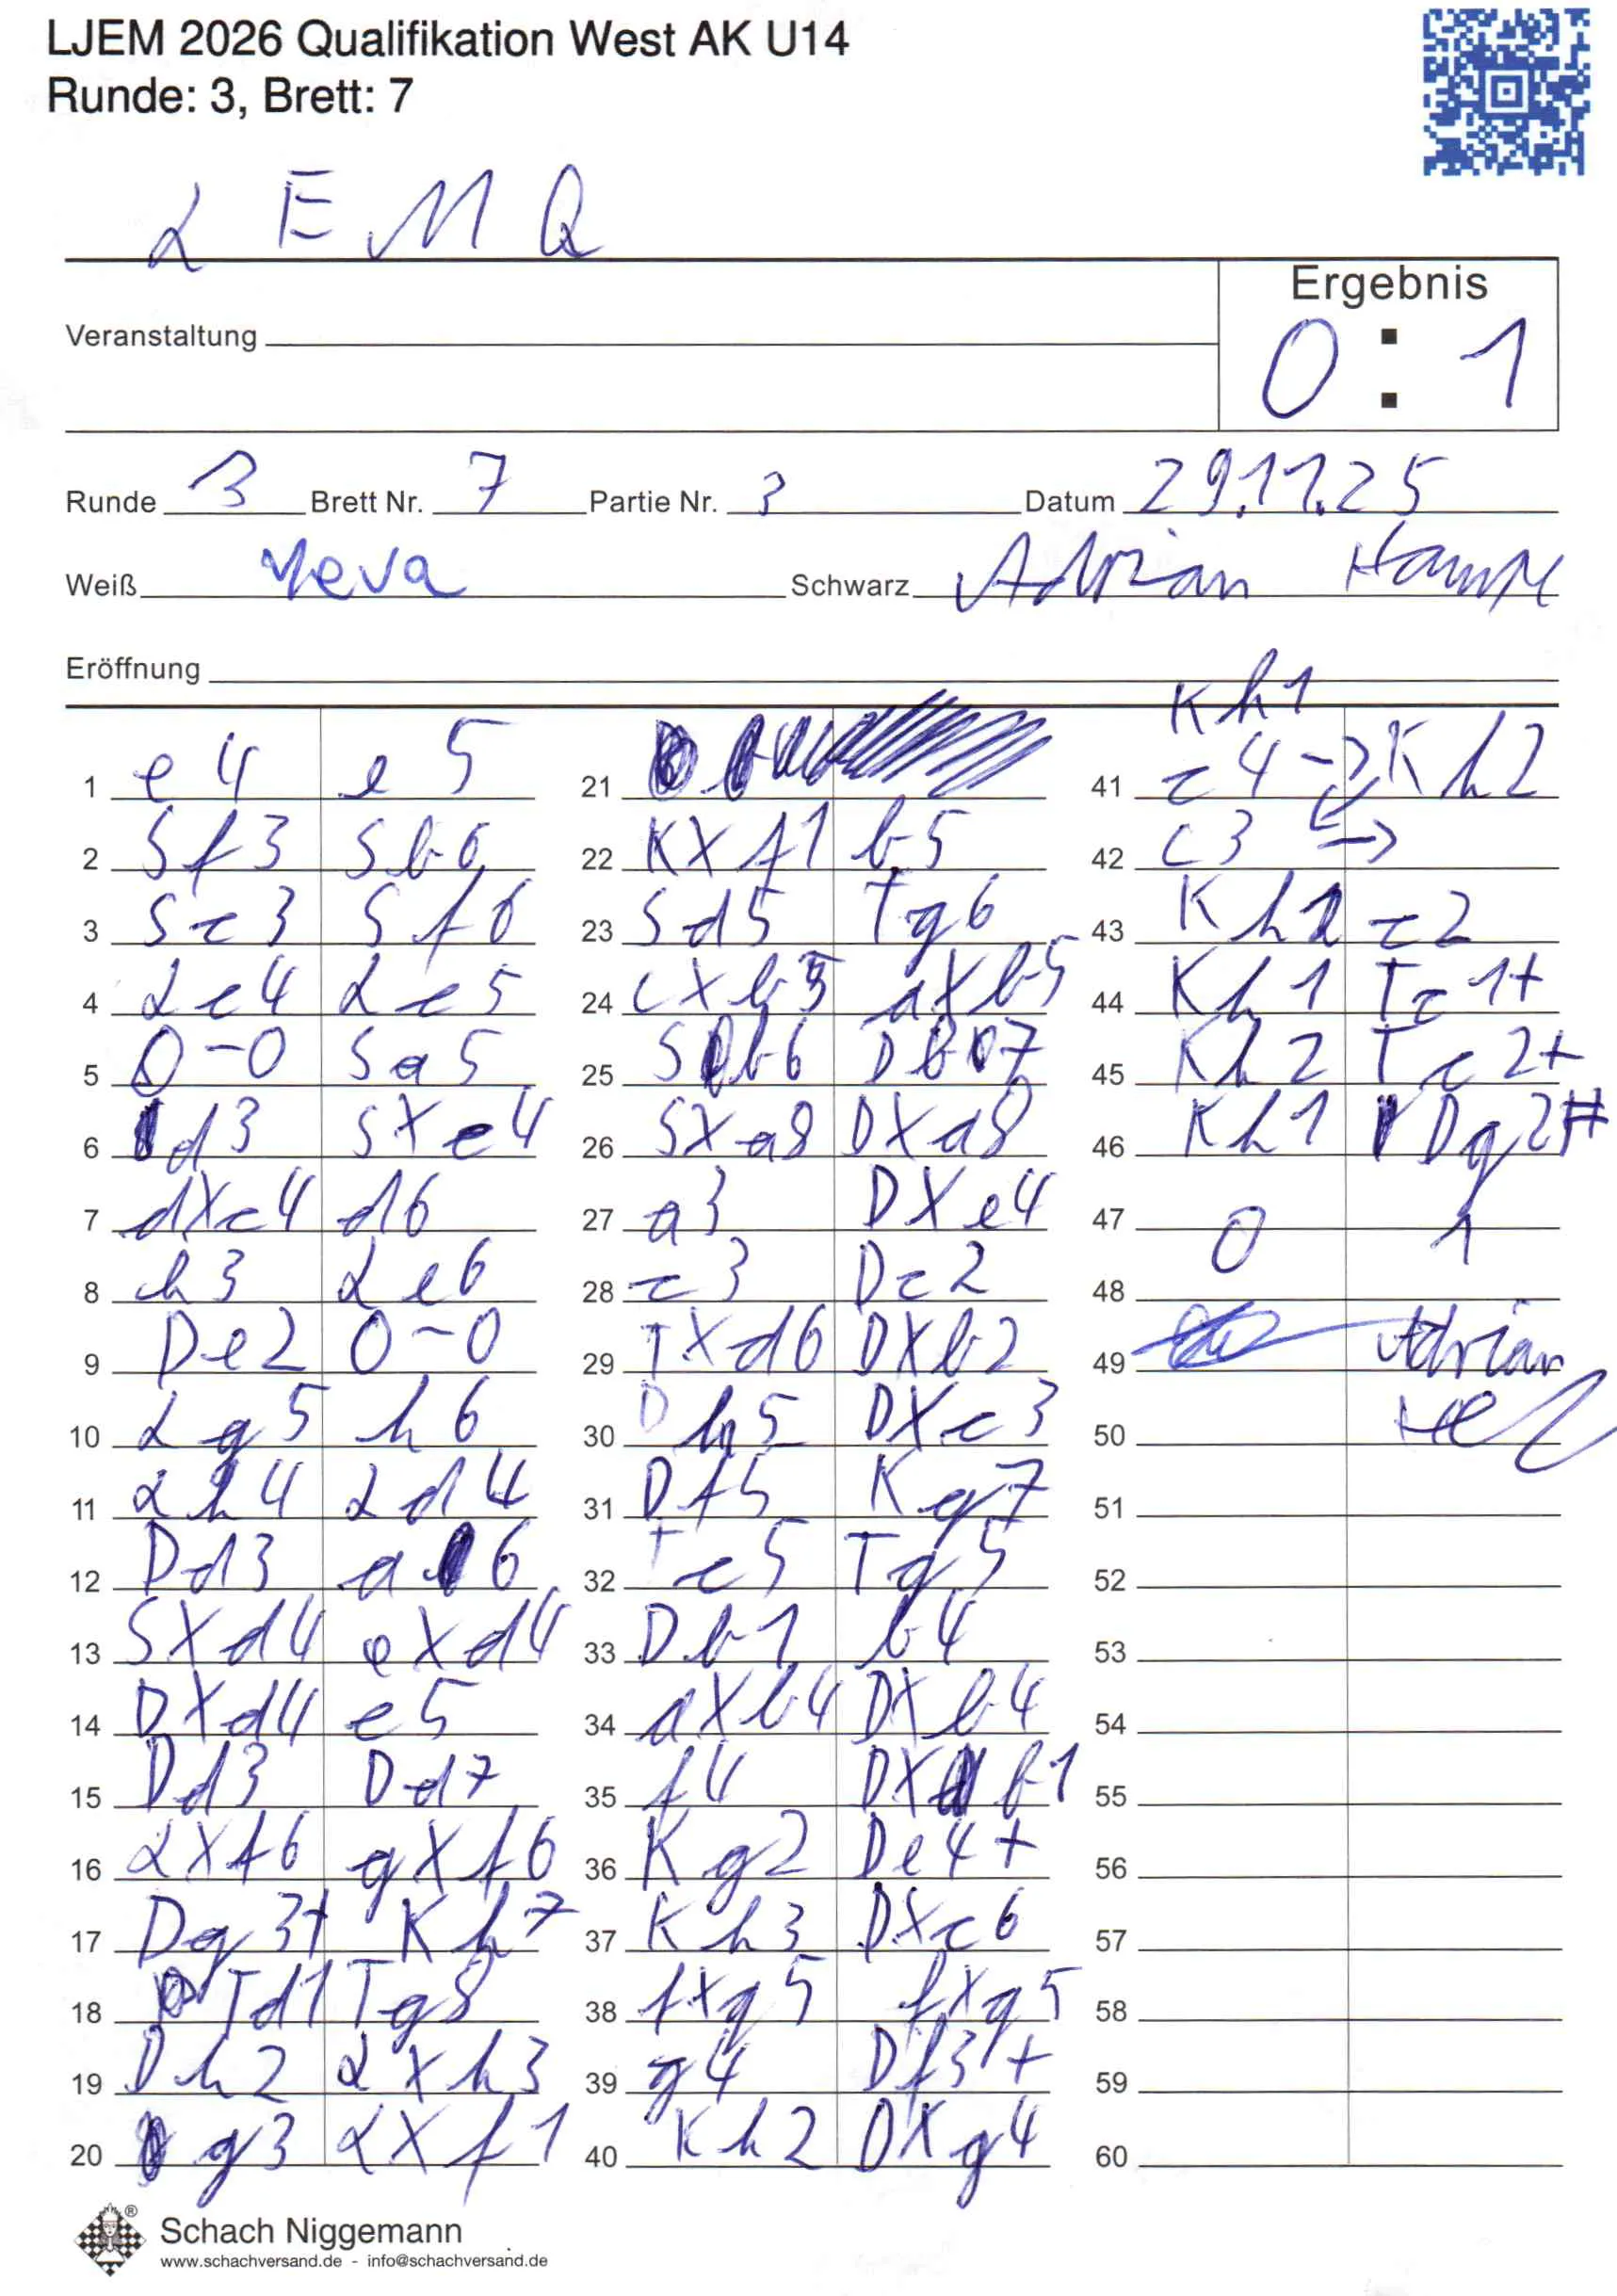 LJEM 2026 Qualifikation West AK U14
Runde: 3, Brett: 7
L E M Q
Ergebnis
Veranstaltung
0 : 1
Runde 3 Brett Nr. 7 Partie Nr. 3 Datum 29.11.25
Weiß Yeva Schwarz Adrian
Eröffnung
1 e4 e5
2 Sf3 Sb6
3 Sc3 Sf6
4 Lc4 Lc5
5 0-0 Sa5
6 d3 SXe4
7 dXc4 d6
8 h3 Le6
9 De2 0-0
10 Lg5 h6
11 Lh4 Ld4
12 Dd3 a6
13 SXd4 eXd4
14 DXd4 e5
15 Dd3 Dd7
16 LXf6 gXf6
17 Dg3+ Kh7
18 Td1 Tg8
19 Dh2 LXh3
20 g3 LXf1
21
22 KXf1 b5
23 Sd5 Tg6
24 cXb5 aXb5
25 Sb6 Db7
26 SXa8 DXa8
27 a3 DXe4
28 c3 Dc2
29 TXd6 DXb2
30 Dh5 DXc3
31 Df5 Kg7
32 Tc5 Tg5
33 Db1 b4
34 aXb4 DXb4
35 f4 DXb1
36 Kg2 De4+
37 Kh3 DXc6
38 fXg5 fXg5
39 g4 Df3+
40 Kh2 DXg4
Kh1
41 c4 -> Kh2
42 c3
43 Kh2 c2
44 Kh1 Tc1+
45 Kh2 Tc2+
46 Kh1 Dg2#
47 0 1
48
49 Adrian
50
51
52
53
54
55
56
57
58
59
60
Schach Niggemann
www.schachversand.de - info@schachversand.de